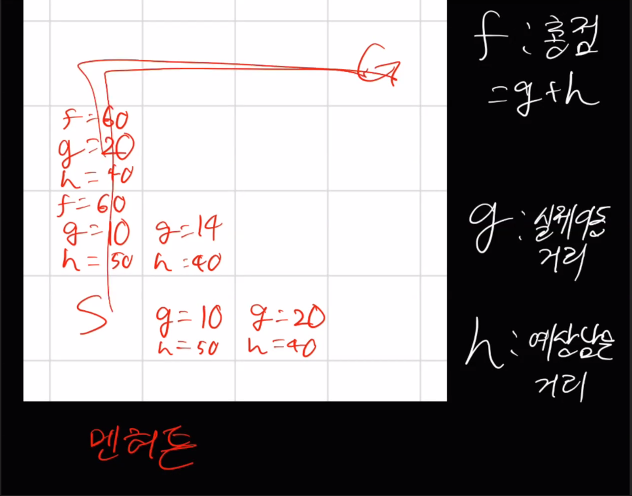 G
f=60
g=20
h=40
f=60
g=10
h=50
g=14
h=40
S
g=10
h=50
g=20
h=40
맨허튼
f:총점
=g+h
g:실제이동
거리
h:예상남은
거리